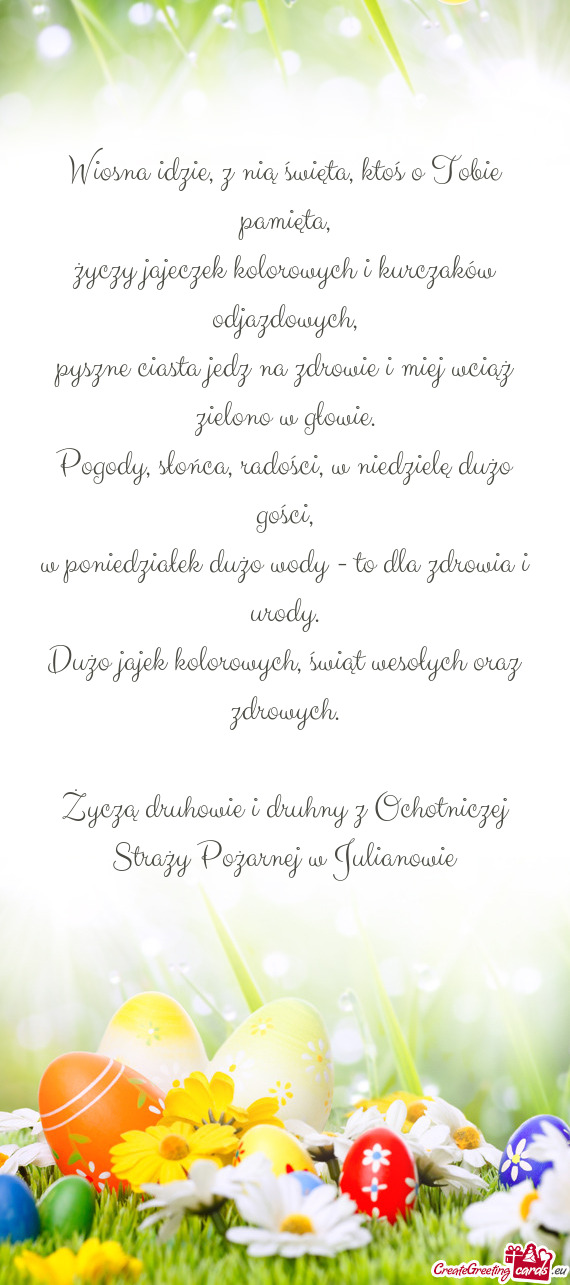 Wiosna idzie, z nią święta, ktoś o Tobie
pamięta,
życzy jajeczek kolorowych i kurczaków
odjazdowych,
pyszne ciasta jedz na zdrowie i miej wciąż
zielono w głowie.
Pogody, słońca, radości, w niedzielę dużo
gości,
w poniedziałek dużo wody - to dla zdrowia i
urody.
Dużo jajek kolorowych, świąt wesołych oraz
zdrowych.
Życzą druhowie i druhny z Ochotniczej
Straży Pożarnej w Julianowie
CreateGreetingcards.eu